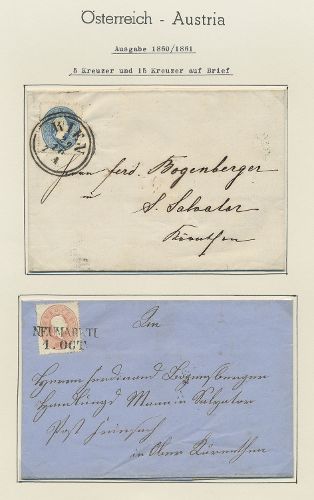 Österreich - Austria
Ausgabe 1860/1861
5 Kreuzer und 15 Kreuzer auf Brief
WIEN
Herrn Ferd. Bogenberger
in
S. Salvator
Kärnthen
NEUMARKTL
1. OCT
An
Herrn Ferdinand Bogensberger
in Salvator
Post
in Ober Kärnthen